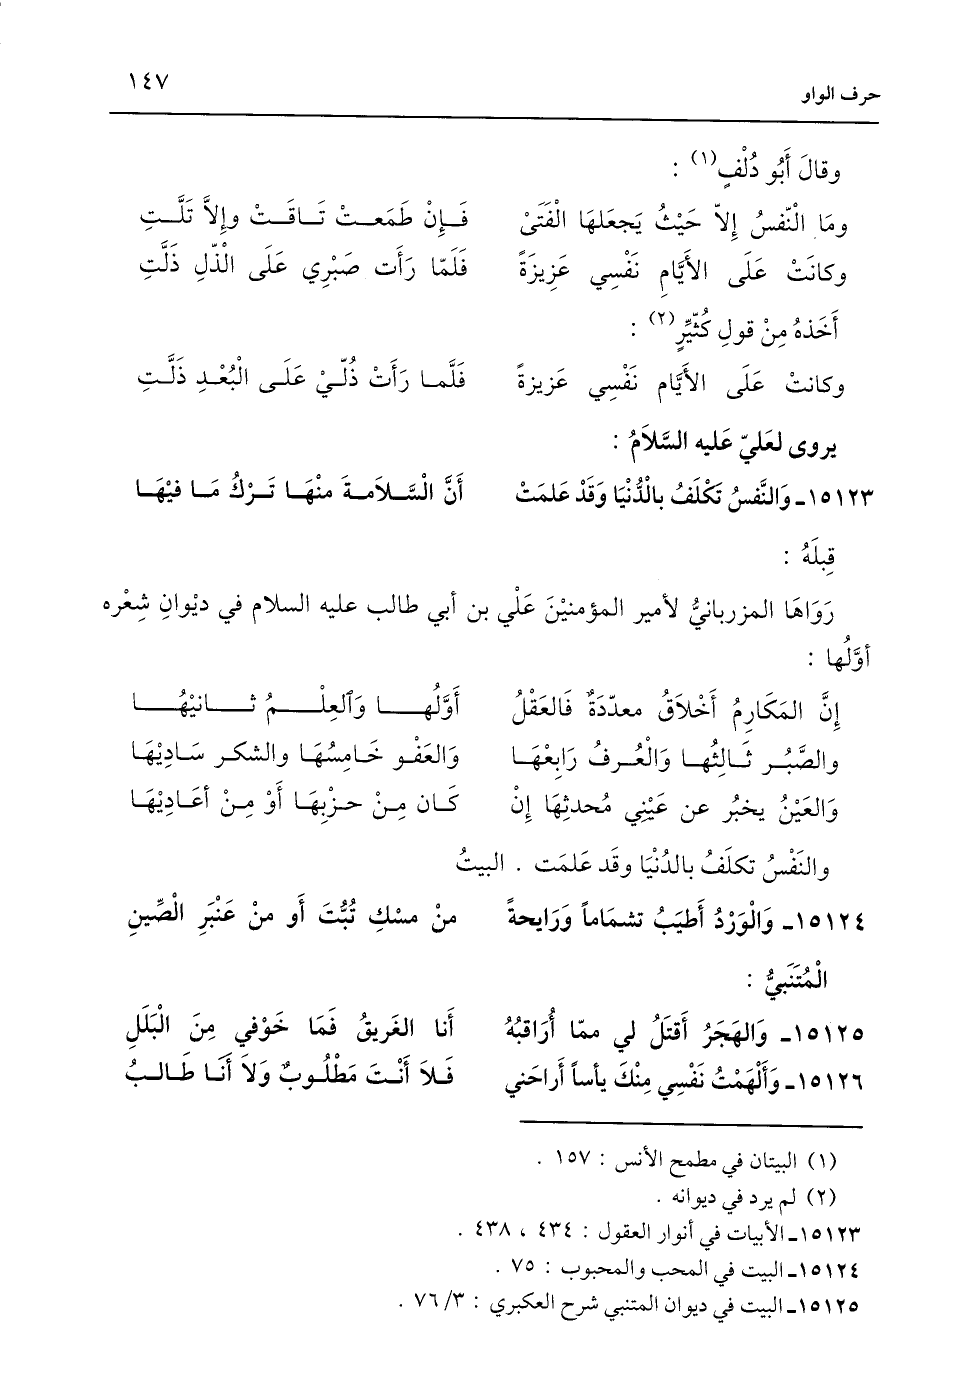 حرف الواو ١٤٧
وقالَ أَبُو دُلْفٍ(١) :
ومَا الْنّفسُ إِلاّ حَيْثُ يَجعلهَا الْفَتَىْ فَإِنْ طَمَعتْ تَاقَتْ وإِلاَّ تَلَّتِ
وكانَتْ عَلَى الأَيَّامِ نَفْسِي عَزِيزةً فَلَمّا رَأَت صَبْرِي عَلَى الْذّلِ ذَلَّتِ
أَخَذهُ مِنْ قولِ كُثّيِّرٍ(٢) :
وكانتْ عَلَى الأَيَّام نَفْسِي عَزيزةً فَلَّما رَأَتْ ذُلّيْ عَلَى الْبُعْدِ ذَلَّتِ
يروى لعَليّ عَليه السَّلاَمُ :
١٥١٢٣ـ وَالنَّفسُ تَكْلَفُ بالْدُّنْيَا وَقَدْ عَلمَتْ أَنَّ الْسَّلاَمةَ منْهَا تَرْكُ مَا فيْهَا
قِبلَهُ :
رَوَاهَا المزربانيُّ لأمير المؤمنيْنَ عَلْي بن أبي طالب عليه السلام في ديْوانِ شِعْره
أوَّلُها :
إِنَّ المَكَارِمُ أَخْلاَقُ معدّدَةٌ فَالعَقْلُ أَوَّلُهَا وَاَلعِلْمُ ثَانيْهُا
والصَّبُر ثَالِثُها وَالْعُرفُ رَابِعْهَا وَالعَفْو خَامِسُهَا والشكر سَاديْهَا
وَالعَيْنُ يخبُر عن عَيْنِي مُحدثِهَا إنْ كَان مِنْ حزْبِهَا أَوْ مِنْ أعَاديْهَا
والنَفْسُ تكلَفُ بالدُنْيَا وقَد عَلمَت . البيتُ
١٥١٢٤ـ وَالْوَرْدُ أَطيَبُ تشمَاماً وَرَايحةً منْ مسْكِ تُبُّتَ أَو منْ عَنْبَر الْصِّينِ
الْمُتَنَبيُّ :
١٥١٢٥ـ وَالهَجَرُ أَقتَلُ لي ممّا أُرَاقبُهُ أَنا الغَريقُ فَمَا خَوْفي مِنَ الْبَلَلِ
١٥١٢٦ـ وَأَلْهَمْتُ نَفْسِي مِنْكَ يأساً أَراحَني فَلاَ أَنْتَ مَطْلُوبٌ وَلاَ أَنَا طَالبُ
(١) البيتان في مطمح الأنس : ١٥٧ .
(٢) لم يرد في ديوانه .
١٥١٢٣ـ الأبيات في أنوار العقول : ٤٣٤ ، ٤٣٨ .
١٥١٢٤ـ البيت في المحب والمحبوب : ٧٥ .
١٥١٢٥ـ البيت في ديوان المتنبي شرح العكبري : ٣/ ٧٦ .